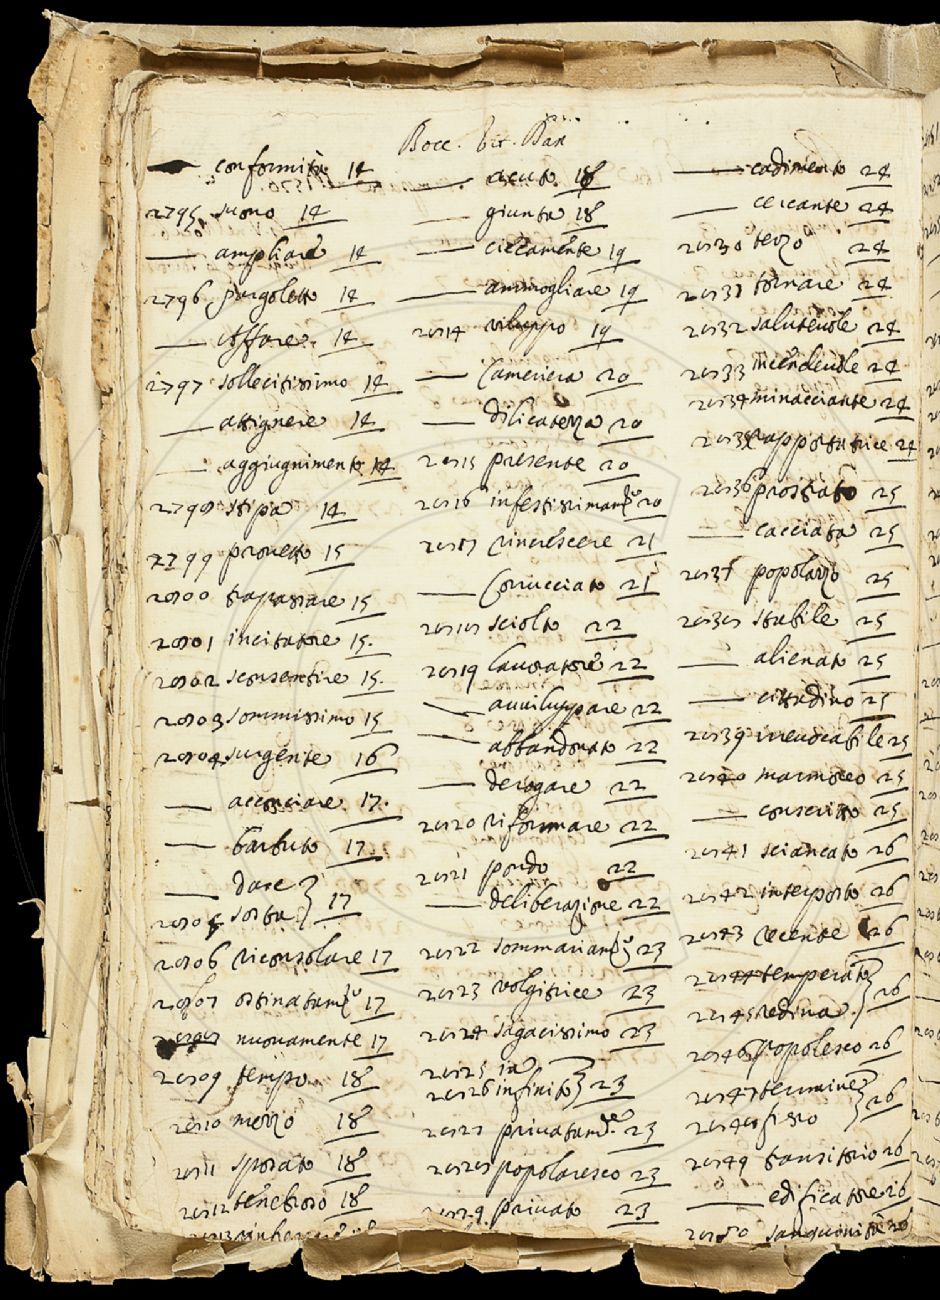 Bocc. Vit. Dan
— conformità 14
2795 suono 14
— ampliare 14
2796 pargoletto 14
— 14
2797 sollecitissimo 14
— attignere 14
— aggiugnimento 14
2798 stipa 14
2799 provetto 15
2800 trapassare 15
2801 incitatore 15.
2802 sconsentire 15.
2803 sommissimo 15
2804 surgente 16
— acconciare 17.
— barbuto 17
— dare
2805 sorta } 17
2806 riconsolare 17
2807 17
2808 nuovamente 17
2809 tempo 18
2810 mezzo 18
2811 sposato 18
2812 tenebroso 18
— acuto 18
— giunta 18
— ciecamente 19
— ammogliare 19
2814 viluppo 19
— Cameriera 20
— dilicatezza 20
2815 presente 20
2816 20
2817 rincrescere 21
— Corrucciato 21
2818 sciolto 22
2819 lavoratore 22
— avviluppare 22
— abbandonato 22
— derogare 22
2820 riformare 22
2821 pondo 22
— deliberazione 22
2822 23
2823 volgitrice 23
2824 sagacissimo 23
2825 in
2826 infinito } 23
2827 23
2828 popolaresco 23
2829 privato 23
— cadimento 24
— cercante 24
2830 terzo 24
2831 tornare 24
2832 salutevole 24
2833 incendevole 24
2834 minacciante 24
2835 rapportatrice 24
2836 prostrato 25
— cacciata 25
2837 popolazzo 25
2838 stabile 25
— alienato 25
— cittadino 25
2839 irrevocabile 25
2840 marmoreo 25
— conscritto 25
2841 sciancato 26
2842 interposto 26
2843 recente 26
2844 temperato
2845 redina } 26
2846 popolesco 26
2847 termine
2848 fisso } 26
2849 transitorio 26
— edificatore 26
2850